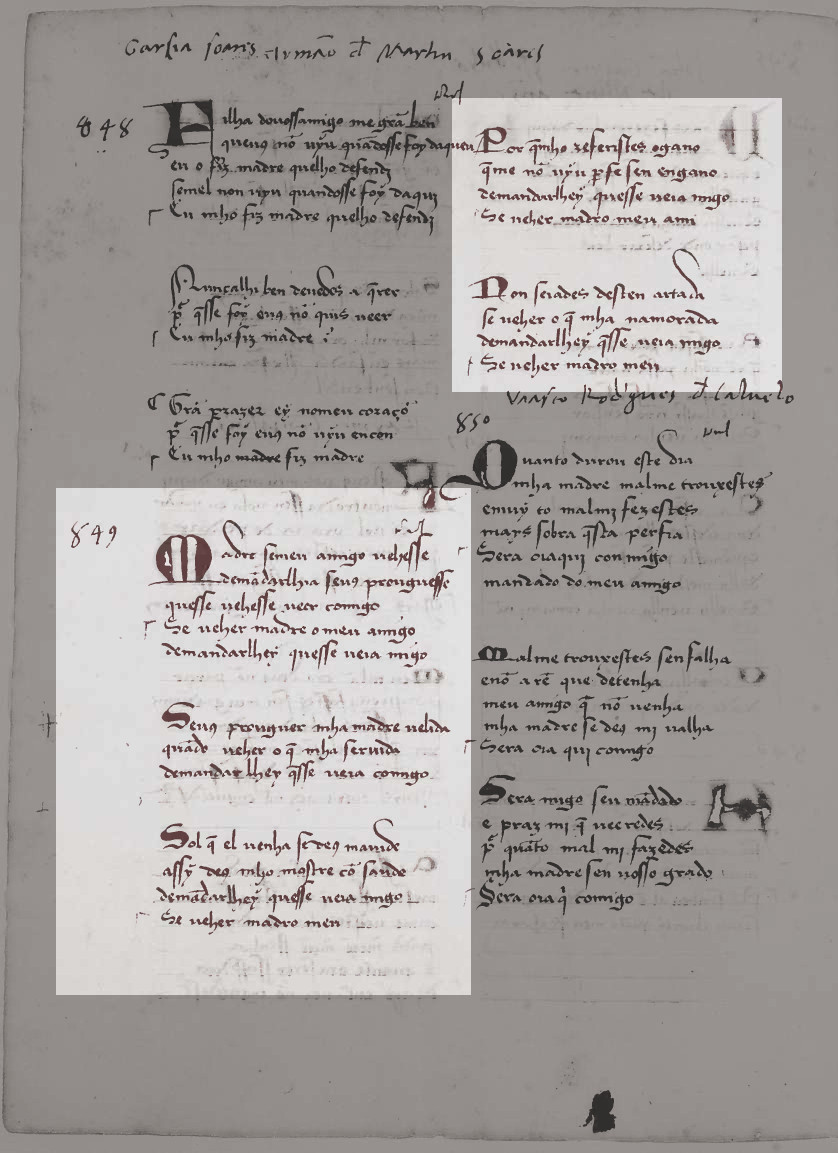 Garsia Soariz irmão d Martin Soariz
848
Filha do uossamigo me grã ben
queuꝯ nõ uyu quãdosse foy daquen
eu o fiz madre quelho defendi
semel non uyu quandosse foy daqui
Eu mho fiz madre quelho defendi
Nuncalhi ben deuedes a q̄rer
q̄sse foy euꝯ nõ quis ueer
Eu mho fiz madre
Grã prazer ey nomeu coraçõ
q̄sse foy euꝯ nõ uyu encon
Eu mho madre fiz madre
849
Madre semeu amigo uehesse
demãdarlhia seuꝯ prouguesse
quesse uehesse ueer comigo
Se ueher madre o meu amigo
demandarlhey quesse ueia migo
Seuꝯ prouguer mha madre uelida
quãdo ueher o q̄ mha seruida
demandarlhey q̄sse ueia comigo
Sol q̄ el uenha se deꝯ maiude
assy deꝯ mho mostre cõ saude
demãdarlhey quesse ueia migo
Se ueher madro meu
Por q̄mho referistes ogano
q̄me nõ uyu per fe sen engano
demandarlhey quesse ueia migo
Se ueher madro meu ami
Non seiades desten artada
se ueher o q̄ mha namorada
demandarlhey q̄sse ueia migo
Se ueher madro meu
Uaasco Rodrigues d Caluelo
850
Quanto durou este dia
mha madre malme trouxestes
emuy to malmi fezestes
mays sobra q̄sta perfia
Sera oiaqui con migo
mandado do meu amigo
Malme trouxestes sen falha
enõ a rẽ que detenha
meu amigo q̄ nõ uenha
mha madre se deꝯ mi ualha
Sera oia qui comigo
Sera migo seu mãdado
e praz mi q̄ ueeredes
quãto mal mi fazedes
mha madre sen uosso grado
Sera oia qi comigo